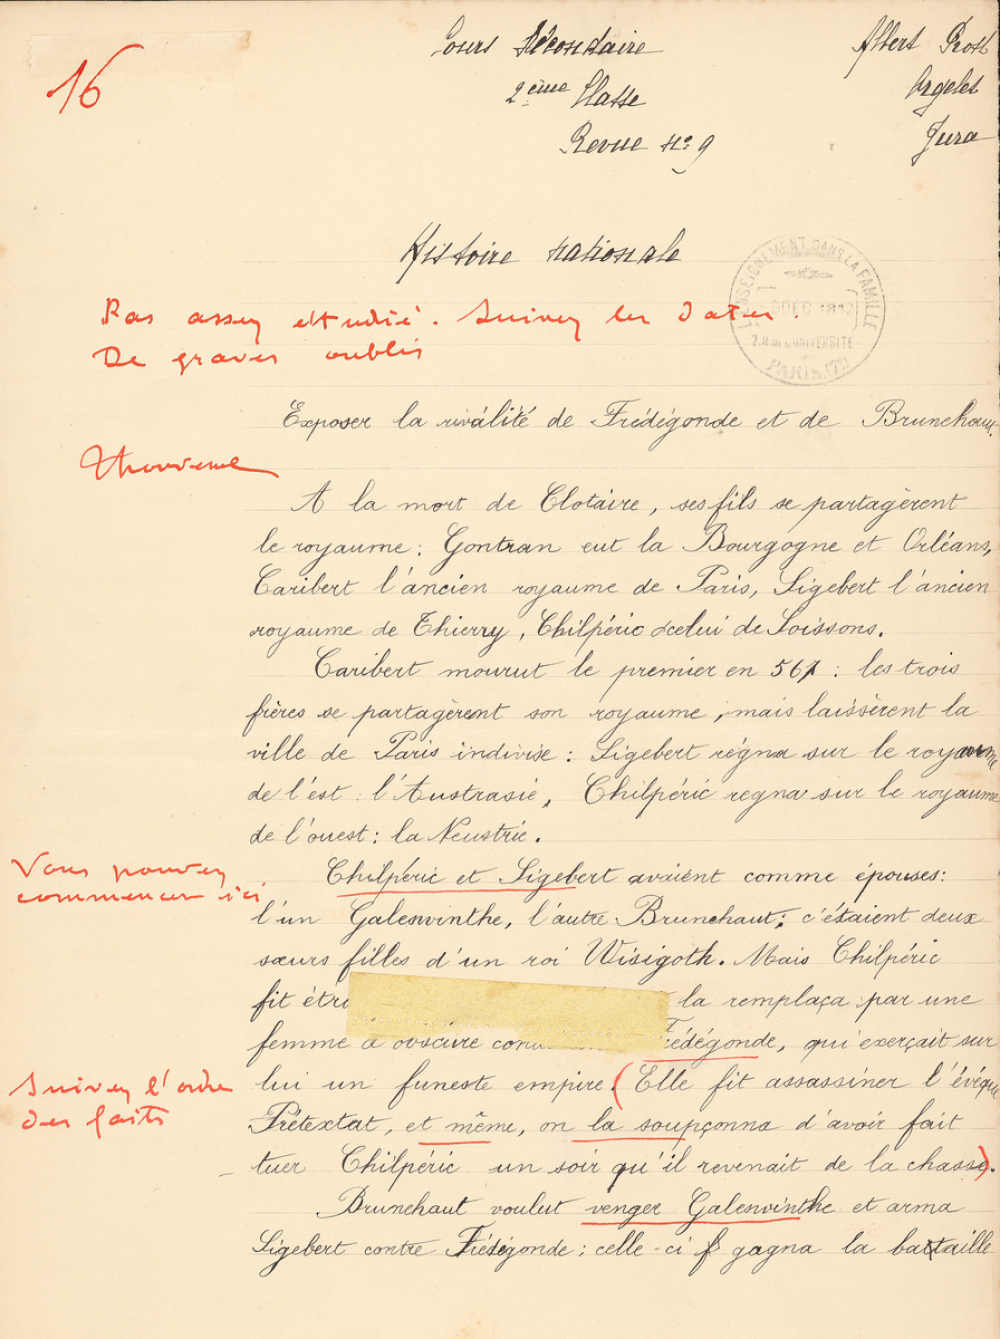 16
Cours Secondaire
2ème Classe
Revue n° 9
Albert Prost
Orgelet
Jura
Histoire nationale
L'ENSEIGNEMENT DANS LA FAMILLE
DEC 1912
PARIS (7e)
Pas assez étudié. Suivez les dates.
De graves oublis
Exposer la rivalité de Frédégonde et de Brunehaut.
A la mort de Clotaire, ses fils se partagèrent
le royaume : Gontran eut la Bourgogne et Orléans,
Caribert l'ancien royaume de Paris, Sigebert l'ancien
royaume de Thierry, Chilpéric celui de Soissons.
Caribert mourut le premier en 567 : les trois
frères se partagèrent son royaume, mais laissèrent la
ville de Paris indivise : Sigebert régna sur le royaume
de l'est : l'Austrasie, Chilpéric regna sur le royaume
de l'ouest : la Neustrie.
Vous pouvez
commencer ici
Chilpéric et Sigebert avaient comme épouses :
l'un Galeswinthe, l'autre Brunehaut ; c'étaient deux
sœurs filles d'un roi Wisigoth. Mais Chilpéric
fit la remplaça par une
femme d'obscure Frédégonde, qui exerçait sur
Suivez l'ordre
des faits
lui un funeste empire. (Elle fit assassiner l'évêque
Prétextat, et même, on la soupçonna d'avoir fait
tuer Chilpéric un soir qu'il revenait de la chasse).
Brunehaut voulut venger Galeswinthe et arma
Sigebert contre Frédégonde ; celle-ci gagna la battaille